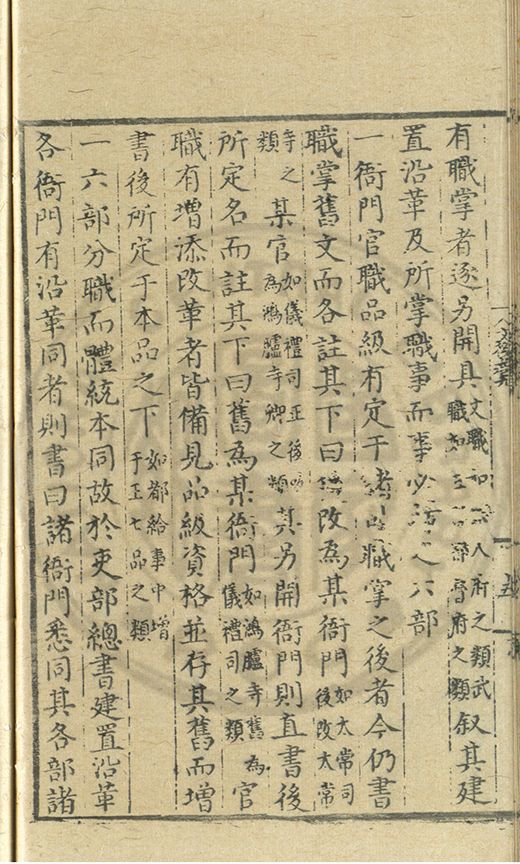 有職掌者逐另開具文職如宗人府之類武職如五軍都督府之類叙其建
置沿革及所掌職事而事必之六部
一衙門官職品級有定于諸司職掌之後者今仍書
職掌舊文而各註其下曰改為某衙門如太常司後改太常
寺之類某官如儀禮司正後改為鴻臚寺卿之類其另開衙門則直書後
所定名而註其下曰舊為某衙門如鴻臚寺舊為儀禮司之類官
職有增添改革者皆備見品級資格並存其舊而增
書後所定于本品之下如都給事中增于正七品之類
一六部分職而體統本同故於吏部總書建置沿革
各衙門有沿革同者則書曰諸衙門悉同其各部諸